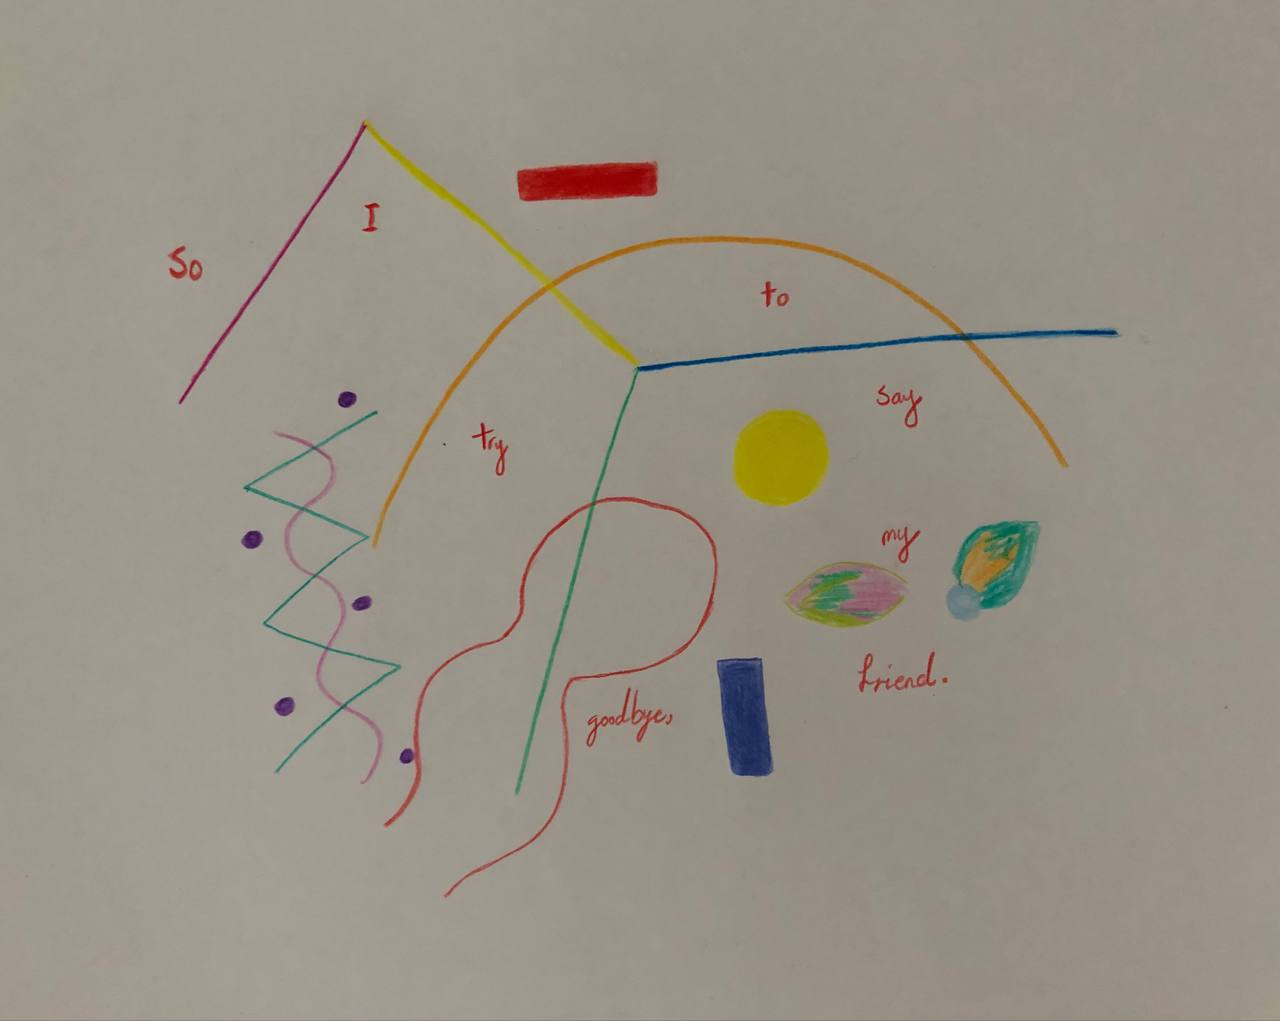 So
I
try
to
say
goodbye,
my
friend.